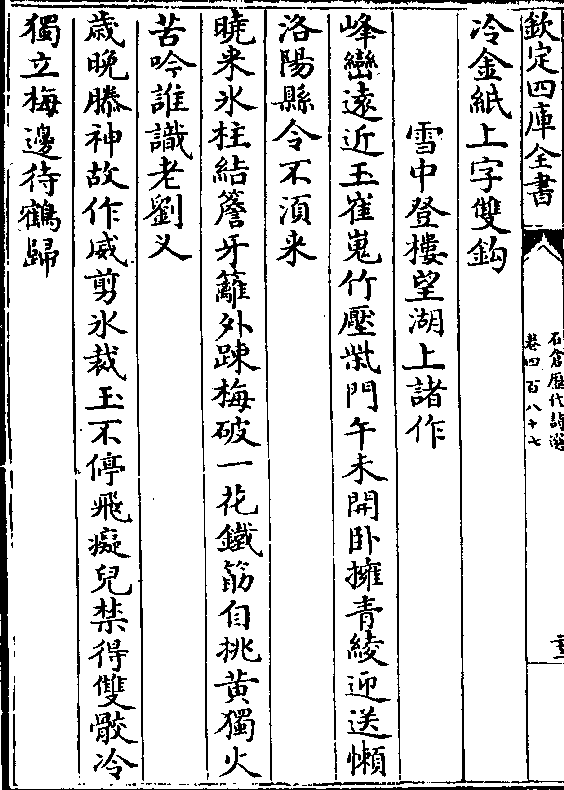 欽定四庫全書
石倉歷代詩選
卷四百八十七
冷金紙上字雙鈎
雪中登樓望湖上諸作
峰巒遠近玉崔嵬竹壓柴門午未開卧擁青綾迎送懶
洛陽縣令不須来
曉来氷柱結簷牙籬外踈梅破一花鐵筯自挑黄獨火
苦吟誰識老劉义
歲晚滕神故作威剪氷裁玉不停飛癡兒禁得雙骹冷
獨立梅邊待鶴歸